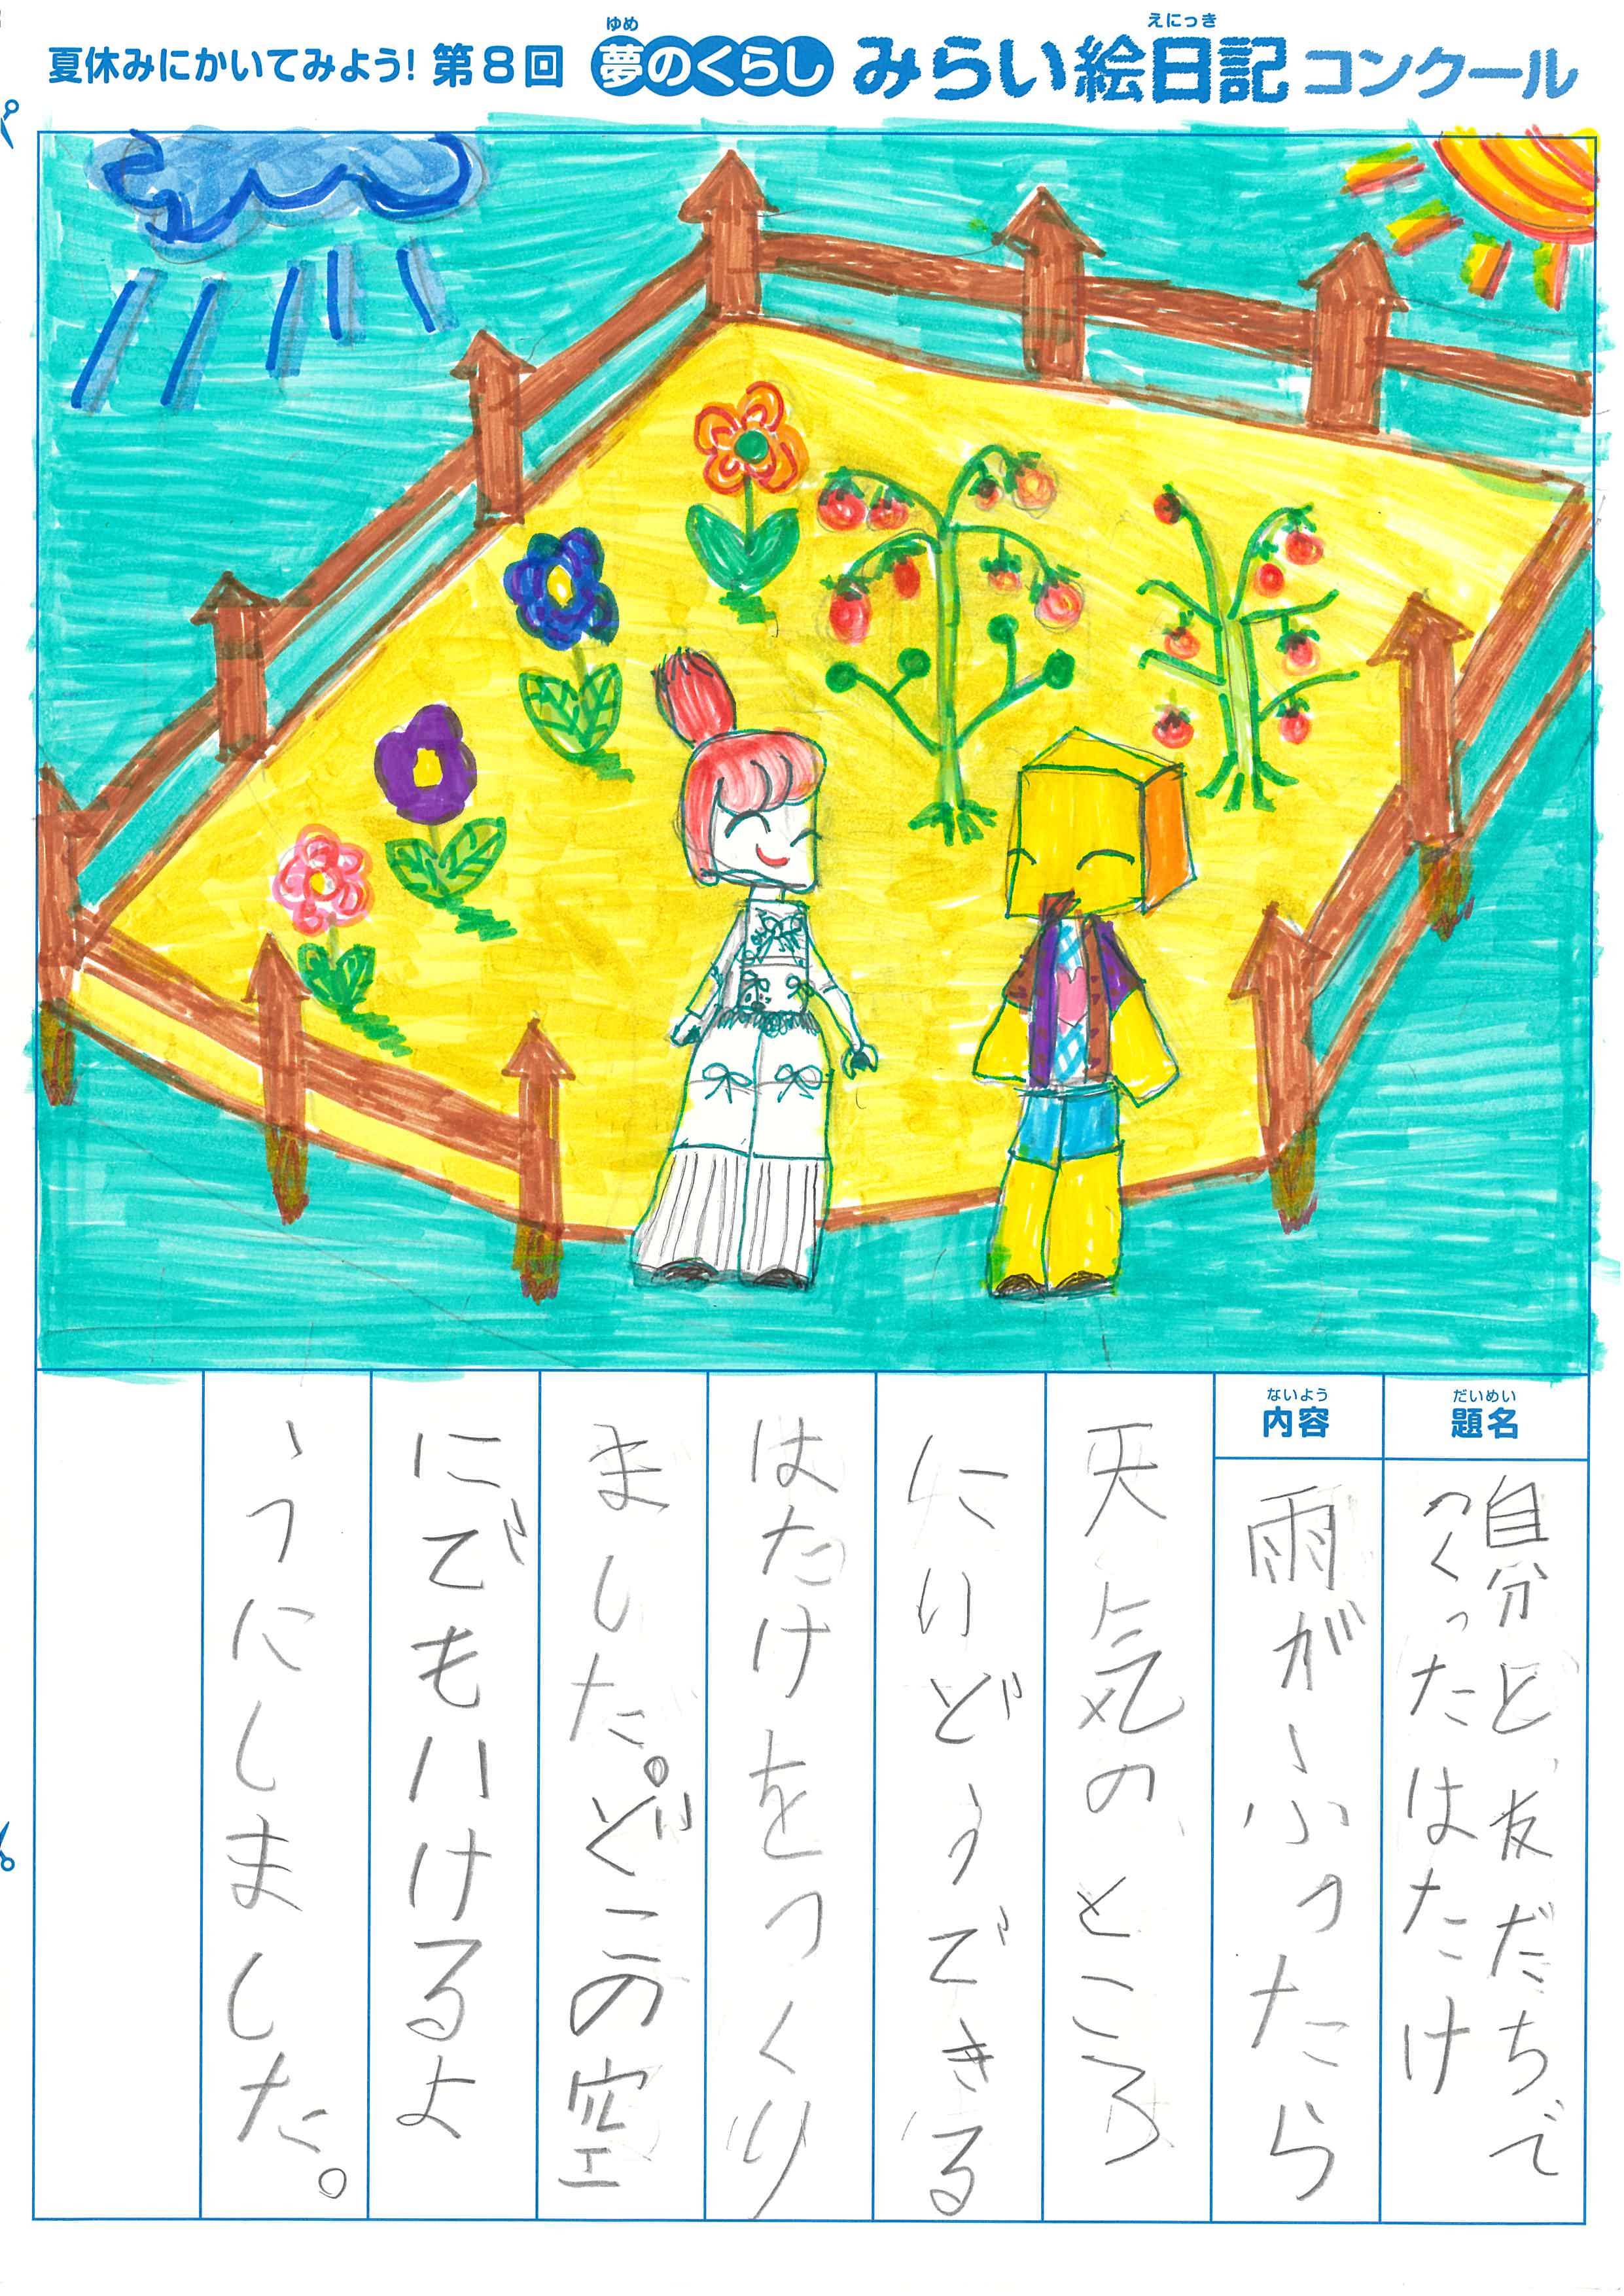 ゆめ
えにっき
夏休みにかいてみよう! 第8回 夢のくらし みらい絵日記コンクール
だいめい
題名
自分と、友だちで
つくったはたけ
ないよう
内容
雨が、ふったら
天気の、ところ
にいどうできる
はたけをつくり
ました。どこの空
にでもいけるよ
うにしました。